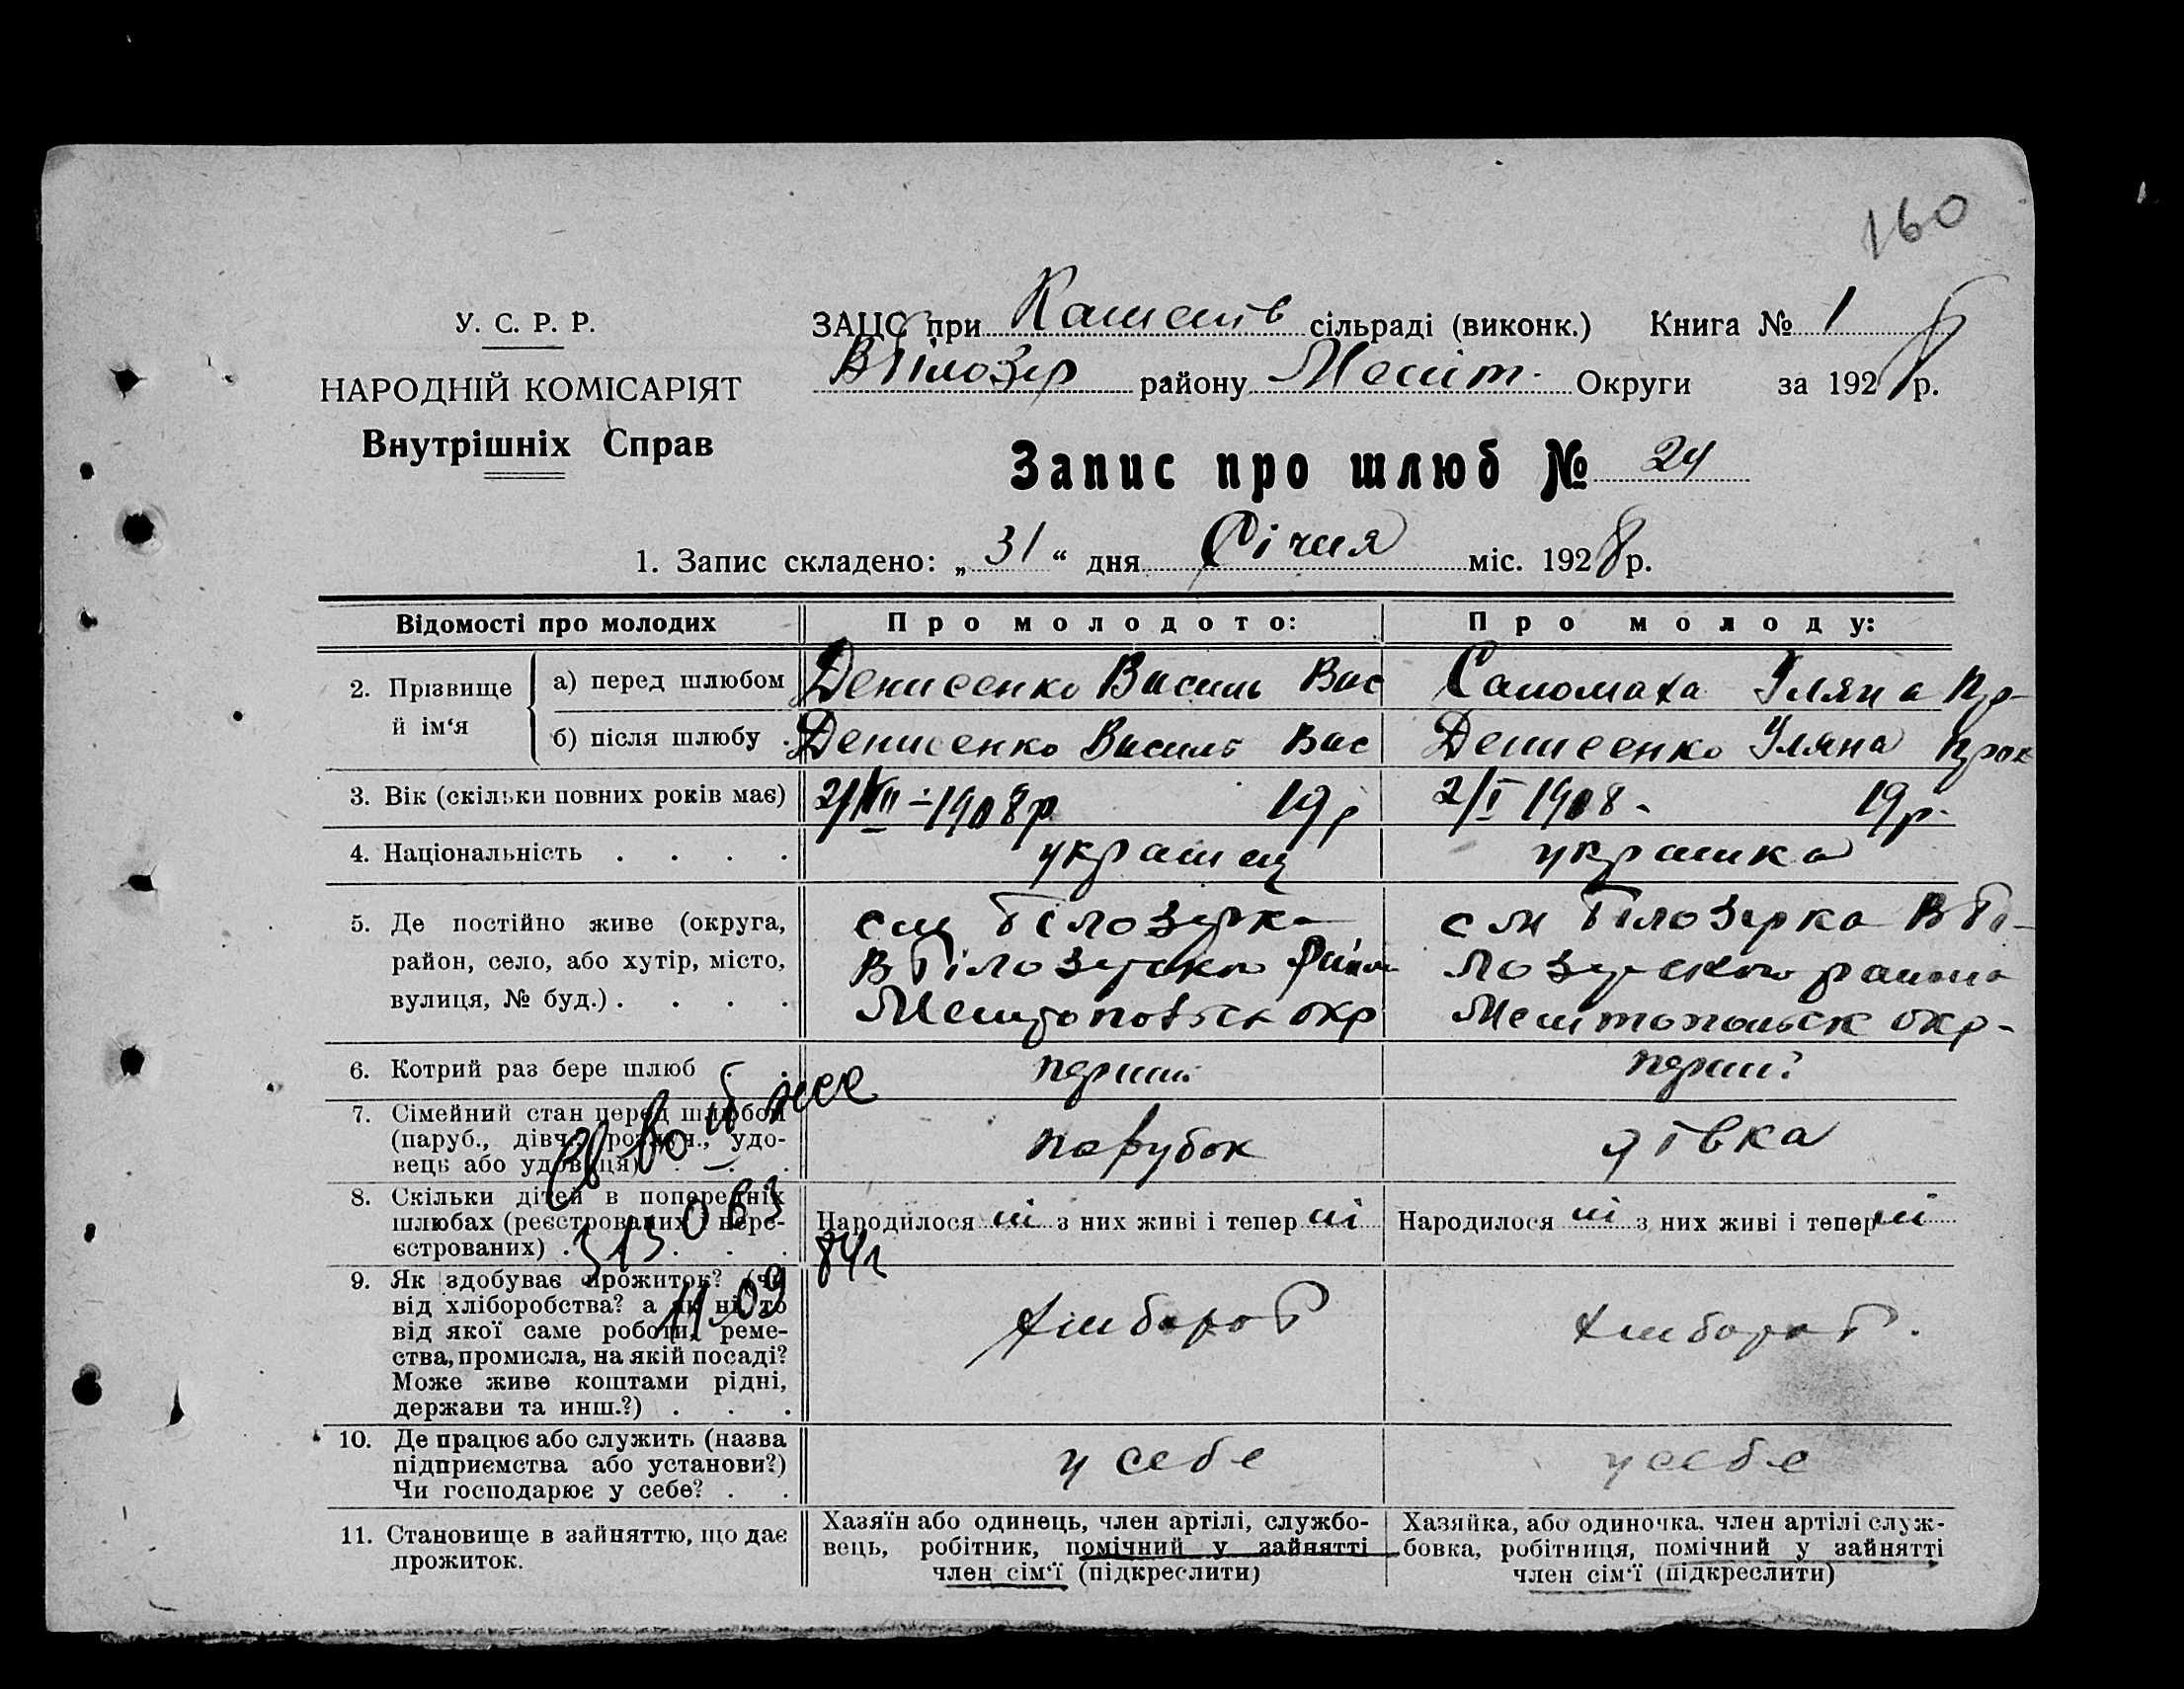 160
У. С. Р. Р.
НАРОДНІЙ КОМІСАРІЯТ
Внутрішніх Справ
ЗАЦС при сільраді (виконк.) Книга № 1
ВБілозер району Меліт. Округи за 1928 р.
Запис про шлюб № 24
1. Запис складено: „ 31 “ дня Січня міс. 1928 р.
Відомості про молодих
Про молодого:
Про молоду:
2. Прізвище й ім‘я
а) перед шлюбом
Денисенко Василь Вас
Саломаха Уляна Пр-
б) після шлюбу .
Денисенко Василь Вас
Денисенко Уляна Прок
3. Вік (скільки повних років має)
1908 р 19 р
2/I 1908 - 19 р.
4. Національність . . . .
українц
українка
5. Де постійно живе (округа,
район, село, або хутір, місто,
вулиця, № буд.) . . . .
Білозерка
ВБілозерсько район
окр
Білозерка ВБі-
лозерського района
Мелітопольск окр-
6. Котрий раз бере шлюб . .
перший
перший
7. Сімейний стан перед шлюбом
(паруб., дівч., розвуч., удо-
вець або удовиця) . . .
парубок
дівка
8. Скільки дітей в попередніх
шлюбах (реєстрованих і нере-
єстрованих) . . . .
Народилося ні з них живі і тепер ні
Народилося ні з них живі і тепер ні
9. Як здобуває прожиток? (чи
від хліборобства? а як ні, то
від якої саме роботи, реме-
ства, промисла, на якій посаді?
Може живе коштами рідні,
держави та инш.?) . . .
хлібороб
хлібороб.
10. Де працює або служить (назва
підприємства або установи?)
Чи господарює у себе? . .
у себе
у себе
11. Становище в зайняттю, що дає
прожиток.
Хазяїн або одинець, член артілі, службо-
вець, робітник, помічний у зайнятті
член сім‘ї (підкреслити)
Хазяйка, або одиночка, член артілі служ-
бовка, робітниця, помічний у зайнятті
член сім‘ї (підкреслити)